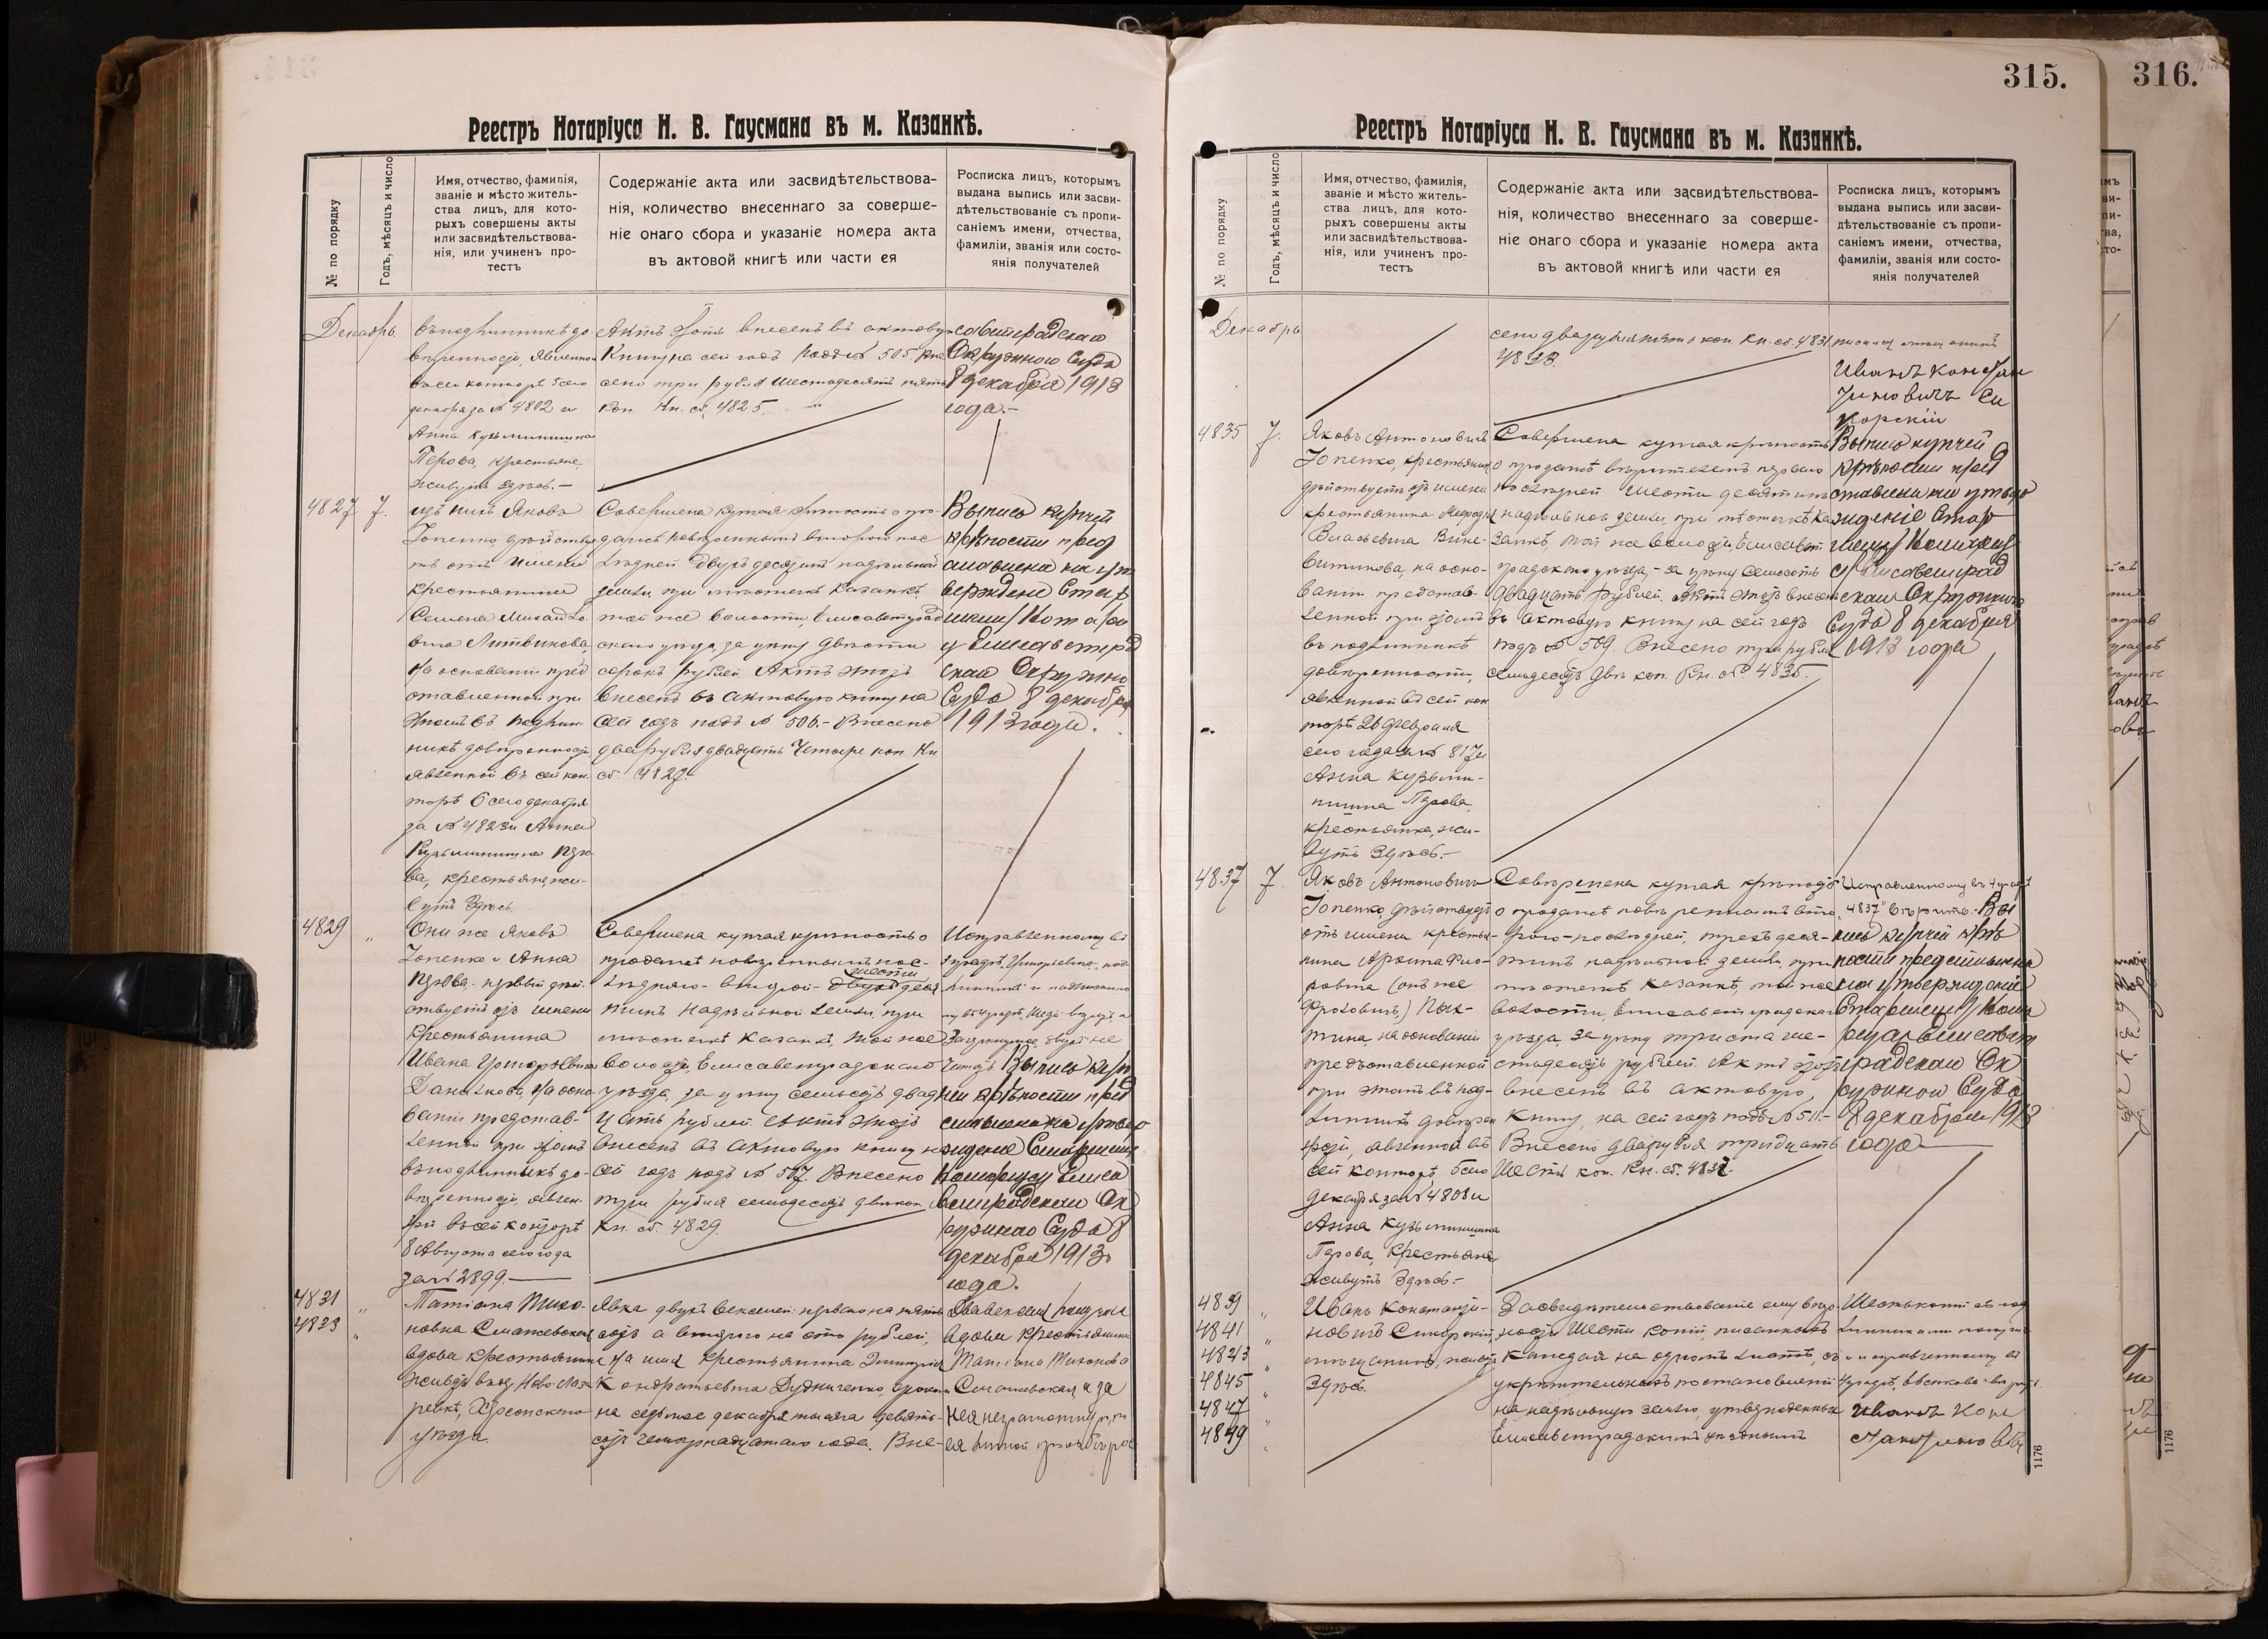 Реестръ Нотаріуса Н. В. Гаусмана въ м. Казанкѣ.
№ по порядку
Годъ, мѣсяцъ и число
Имя, отчество, фамилія,
званіе и мѣсто житель-
ства лицъ, для кото-
рыхъ совершены акты
или засвидѣтельствова-
нія, или учиненъ про-
тестъ
Содержаніе акта или засвидѣтельствова-
нія, количество внесеннаго за соверше-
ніе онаго сбора и указаніе номера акта
въ актовой книгѣ или части ея
Росписка лицъ, которымъ
выдана выпись или засви-
дѣтельствованіе съ пропи-
саніемъ имени, отчества,
фамиліи, званія или состо-
янія получателей
Декабрь
въ подлинникѣ до-
вѣренности, явленной
въ сей конторѣ 5 сего
декабря за № 4802 и
Анна Кузьминишна
Перова, крестьяне,
живутъ здѣсь.-
Актъ этотъ внесенъ въ актовую
книгу на сей годъ подъ № 505. Вне-
сено три рубля шестьдесятъ пять
коп. Кн. сб. 4825.
Окружного Суда
8 декабря 1913
года.-
4827
7.
изъ нихъ Яковъ
Гопенко дѣйствуе-
тъ отъ имени
крестьянина
Семена Михайло-
вича Литвинова,
на основаніи пред-
ставленной при
этомъ въ подлин-
никѣ довѣренности,
явленной въ сей кон-
торѣ 6 сего декабря
за № 4823 и Анна
Кузьминишна Перо-
ва, крестьяне, жи-
вутъ здѣсь.
Совершена купчая крѣпость о про-
дажѣ повѣреннымъ второго пос-
лѣдней двухъ десятинъ надѣльной
земли, при мѣстечкѣ Казанкѣ,
той же волости, Елисаветград-
скаго уѣзда, за цѣну двѣсти
сорокъ рублей. Актъ этотъ
внесенъ въ актовую книгу на
сей годъ подъ № 506.- Внесено
два рубля двадцать четыре коп. Кн.
сб. 4827.
Выпись купчей
крѣпости пред
ставлена на ут
вержденіе Стар
шему Нотаріу
су Елисаветград
скаго Окружного
Суда 8 декабря
1913 года.
4829
"
Они же Яковъ
Гопенко и Анна
Перова - первый дѣй-
ствуетъ отъ имени
крестьянина
Ивана Григорьевича
на осно-
ваніи представ-
ленной при этомъ
въ подлинникѣ до-
вѣренности, явлен-
ной въ сей конторѣ
8 Августа сего года
за № 2899.
Совершена купчая крѣпость о
продажѣ повѣреннымъ пос-
лѣдняго - второй - двухъ деся
шести
тинъ надѣльной земли, при
мѣстечкѣ Казанкѣ, той же
волости, Елисаветградскаго
уѣзда, за цѣну семьсотъ двад-
цать рублей. Актъ этотъ
внесенъ въ актовую книгу на
сей годъ подъ № 507. Внесено
три рубля семьдесятъ двѣ коп.
Кн. сб. 4829.
Исправленному въ
Выпись куп
чей крѣпости пред
ставлена на утвер
жденіе Старшему
Нотаріусу Елиса
ветградскаго Ок
ружнаго Суда 8
декабря 1913
года.
4831
"
4833
"
Татіана Тихо-
новна Смашевская,
вдова крестьянина
живетъ въ дер. Ново-Лаза-
ревкѣ, Херсонскаго
уѣзда.
Явка двухъ векселей: перваго на пять-
сотъ а второго на сто рублей,
на имя крестьянина Димитрія
Кондратьевича Дудниченко, срокомъ
на седьмое декабря тысяча девять-
сотъ четырнадцатаго года. Вне-
Два векселя получила
вдова крестьянина
Татіана Тихоновна
Смашевская, а за
нея неграмотную, по
315.
316.
Реестръ Нотаріуса Н. В. Гаусмана въ м. Казанкѣ.
№ по порядку
Годъ, мѣсяцъ и число
Имя, отчество, фамилія,
званіе и мѣсто житель-
ства лицъ, для кото-
рыхъ совершены акты
или засвидѣтельствова-
нія, или учиненъ про-
тестъ
Содержаніе акта или засвидѣтельствова-
нія, количество внесеннаго за соверше-
ніе онаго сбора и указаніе номера акта
въ актовой книгѣ или части ея
Росписка лицъ, которымъ
выдана выпись или засви-
дѣтельствованіе съ пропи-
саніемъ имени, отчества,
фамиліи, званія или состо-
янія получателей
Декабрь
сено два рубля пять коп. Кн. сб. 4831,
4833.
Иванъ Констан
тиновичъ Си
корскій
4835
7.
Яковъ Антоновичъ
Гопенко, крестьянинъ
дѣйствуетъ отъ имени
крестьянина
Власьевича Вини-
витинова, на осно-
ваніи представ-
ленной при этомъ
въ подлинникѣ
довѣренности,
явленной въ сей кон-
торѣ 26 февраля
сего года за № 817 и
Анна Кузьми-
нишна Перова,
крестьянка, жи-
вутъ здѣсь.-
Совершена купчая крѣпость
о продажѣ вѣрителемъ перваго
послѣдней шести десятинъ
надѣльной земли, при мѣстечкѣ Ка-
занкѣ, той же волости, Елисавет-
градскаго уѣзда,- за цѣну семьсотъ
двадцать рублей. Актъ этотъ внесенъ
въ актовую книгу на сей годъ
подъ № 509. Внесено три рубля
семьдесятъ двѣ коп. Кн. № 4835.
Выпись купчей
крѣпости пред
ставлена на утвер
жденіе Стар
шему Нотаріу
су Елисаветград
скаго Окружного
Суда 8 декабря
1913 года
4837
7.
Яковъ Антоновичъ
Гопенко, дѣйствуетъ
отъ имени крестья-
нина Архипа Фло-
ровича (онъ же
Фроловичъ) Пах-
тина, на основаніи
представленной
при этомъ въ под-
линникѣ довѣрен-
ности, явленной въ
сей конторѣ, 5 сего
декабря за № 4808 и
Анна Кузьминишна
Перова, крестьяне
живутъ здѣсь.-
Совершена купчая крѣпость
о продажѣ повѣреннымъ вто-
рого - послѣдней, трехъ деся-
тинъ надѣльной земли, при
мѣстечкѣ Казанкѣ, той же
волости, Елисаветградскаго
уѣзда, за цѣну триста ше-
стьдесятъ рублей. Актъ этотъ
внесенъ въ актовую,
книгу, на сей годъ подъ № 511.-
Внесено два рубля тридцать
шесть коп. Кн. сб. 4837.
Исправленному въ 1 графѣ
"4837" вѣрить.- Вы
пись купчей крѣ
пости представлена
на утвержденіе
Старшему Нота
ріусу Елисавет
градскаго Ок
ружного Суда
8 декабря 1913
года
4839
"
4841
"
4843
"
4845
"
4847
"
4849
"
Иванъ Константи-
новичъ Сикорскій,
мѣщанинъ, живетъ
здѣсь.
Засвидѣтельствованіе ему вѣр-
ности шести копій, писанныхъ
каждая на одномъ листѣ, съ
укрѣпительныхъ постановленій
на надѣльную землю, утвержденныхъ
Елисаветградскимъ уѣзднымъ
Шесть копій съ под
линниками получилъ
и исправленному въ
Иванъ Кон
стантиновичъ
1176
1176